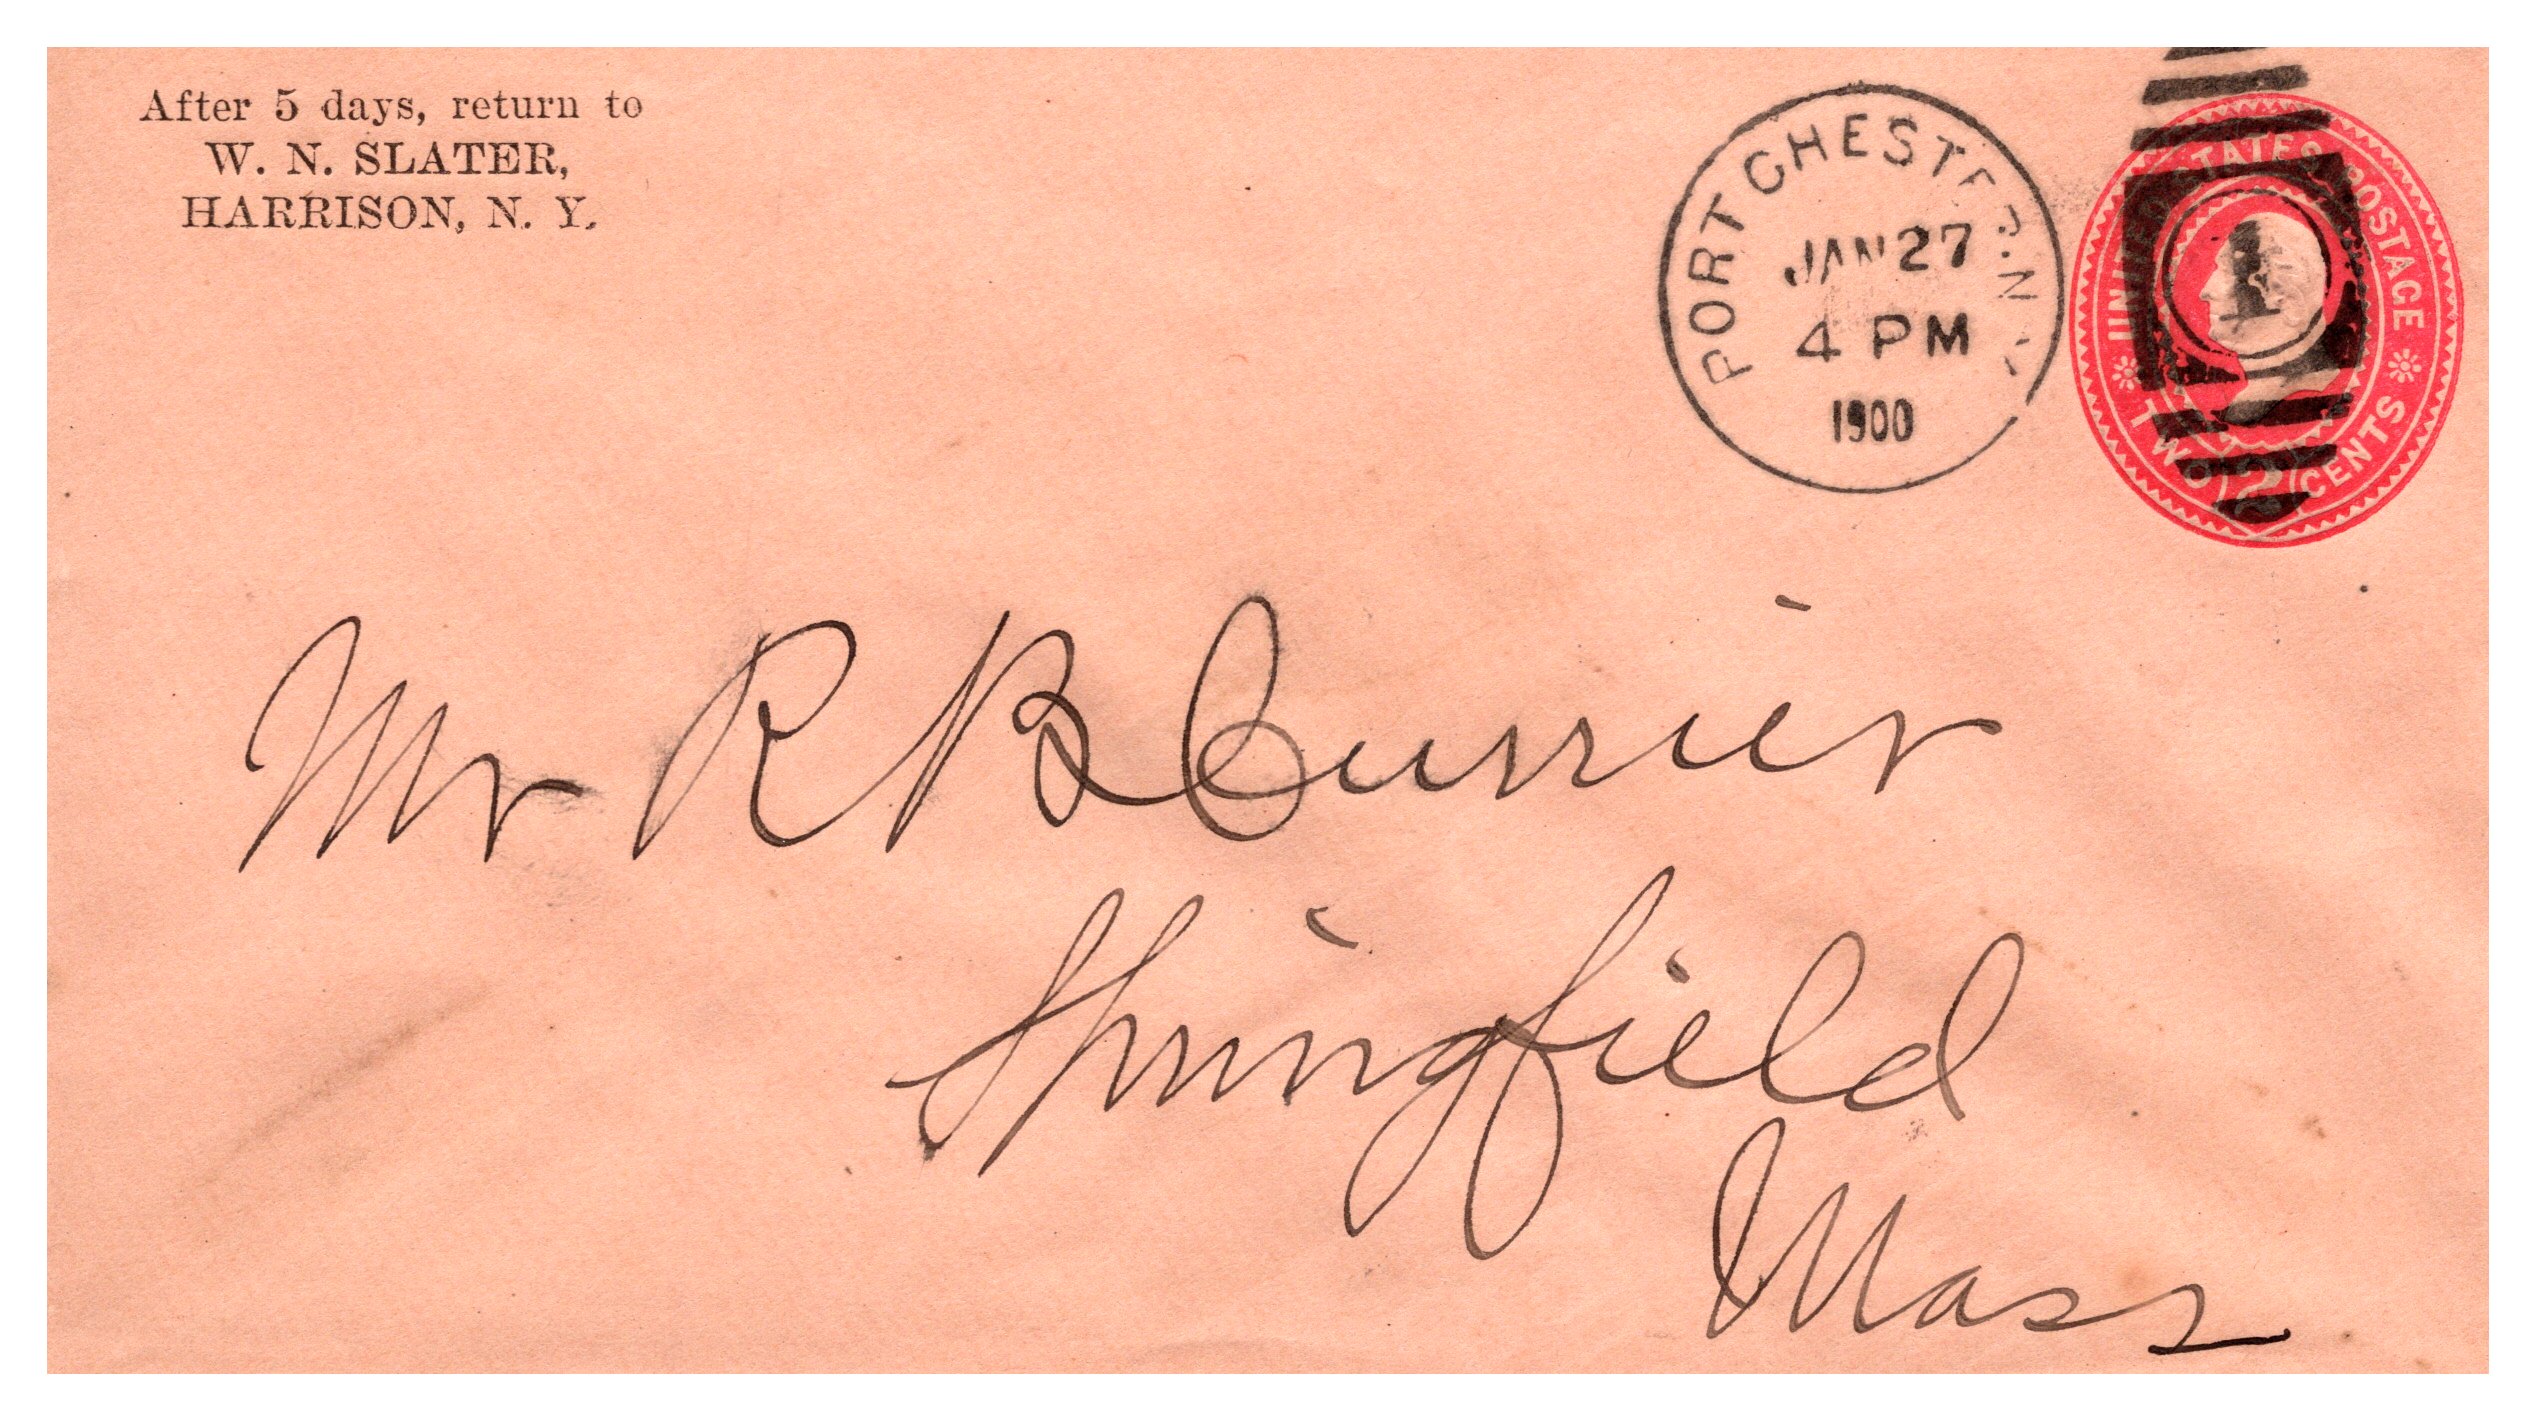 After 5 days, return to
W. N. SLATER,
HARRISON, N. Y.
PORT CHESTER, N.Y.
JAN 27
4 PM
1900
1
UNITED STATES POSTAGE
TWO 2 CENTS
Mr R B Currier
Springfield
Mass